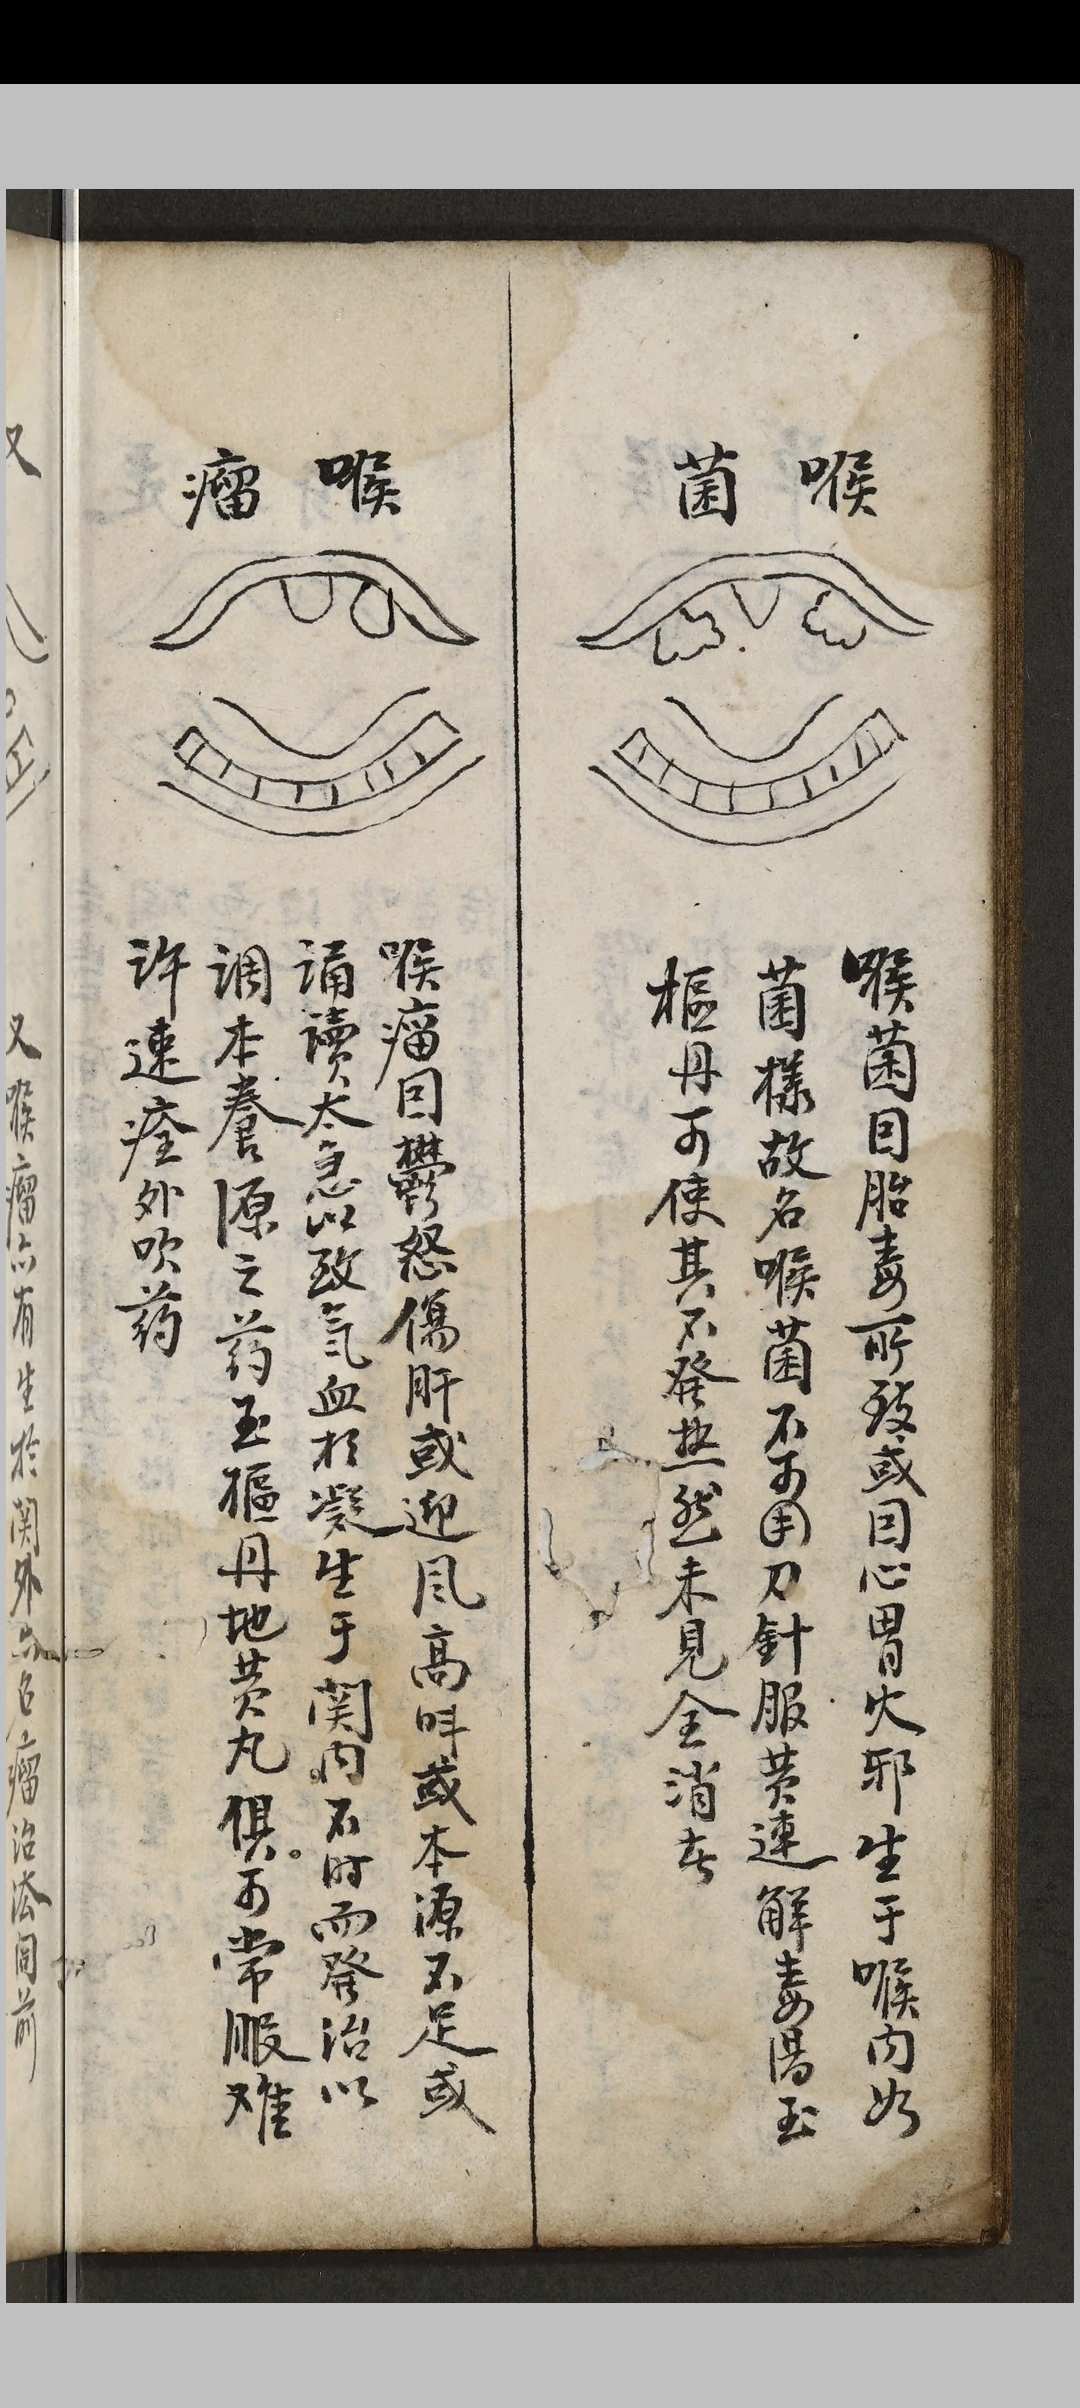 喉菌
喉菌因胎毒所致或因心胃火邪生于喉内如
菌樣故名喉菌不可用刀針服黄連解毒湯玉
樞丹可使其不發熱然未見全消者
喉瘤
喉瘤因鬱怒傷肝或迎风高呌或本源不足或
誦讀太急以致氣血相凝生于関内不時而發治以
调本養源之药玉樞丹地黄丸俱可常服难
许速痊外吹药
又
又喉瘤亦有生於関外亦名瘤治法同前